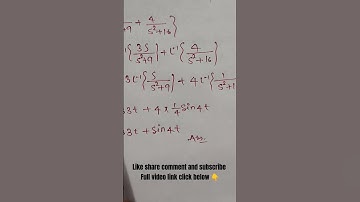 +9 + 4/(s²+16)}
{3s/(s²+9)} + L⁻¹{4/(s²+16)}
3L⁻¹{s/(s²+9)} + 4L⁻¹{1/(s²+1
33t + 4 × 1/4 sin4t
33t + sin4t
Ans.
Like share comment and subscribe
Full video link click below 👇